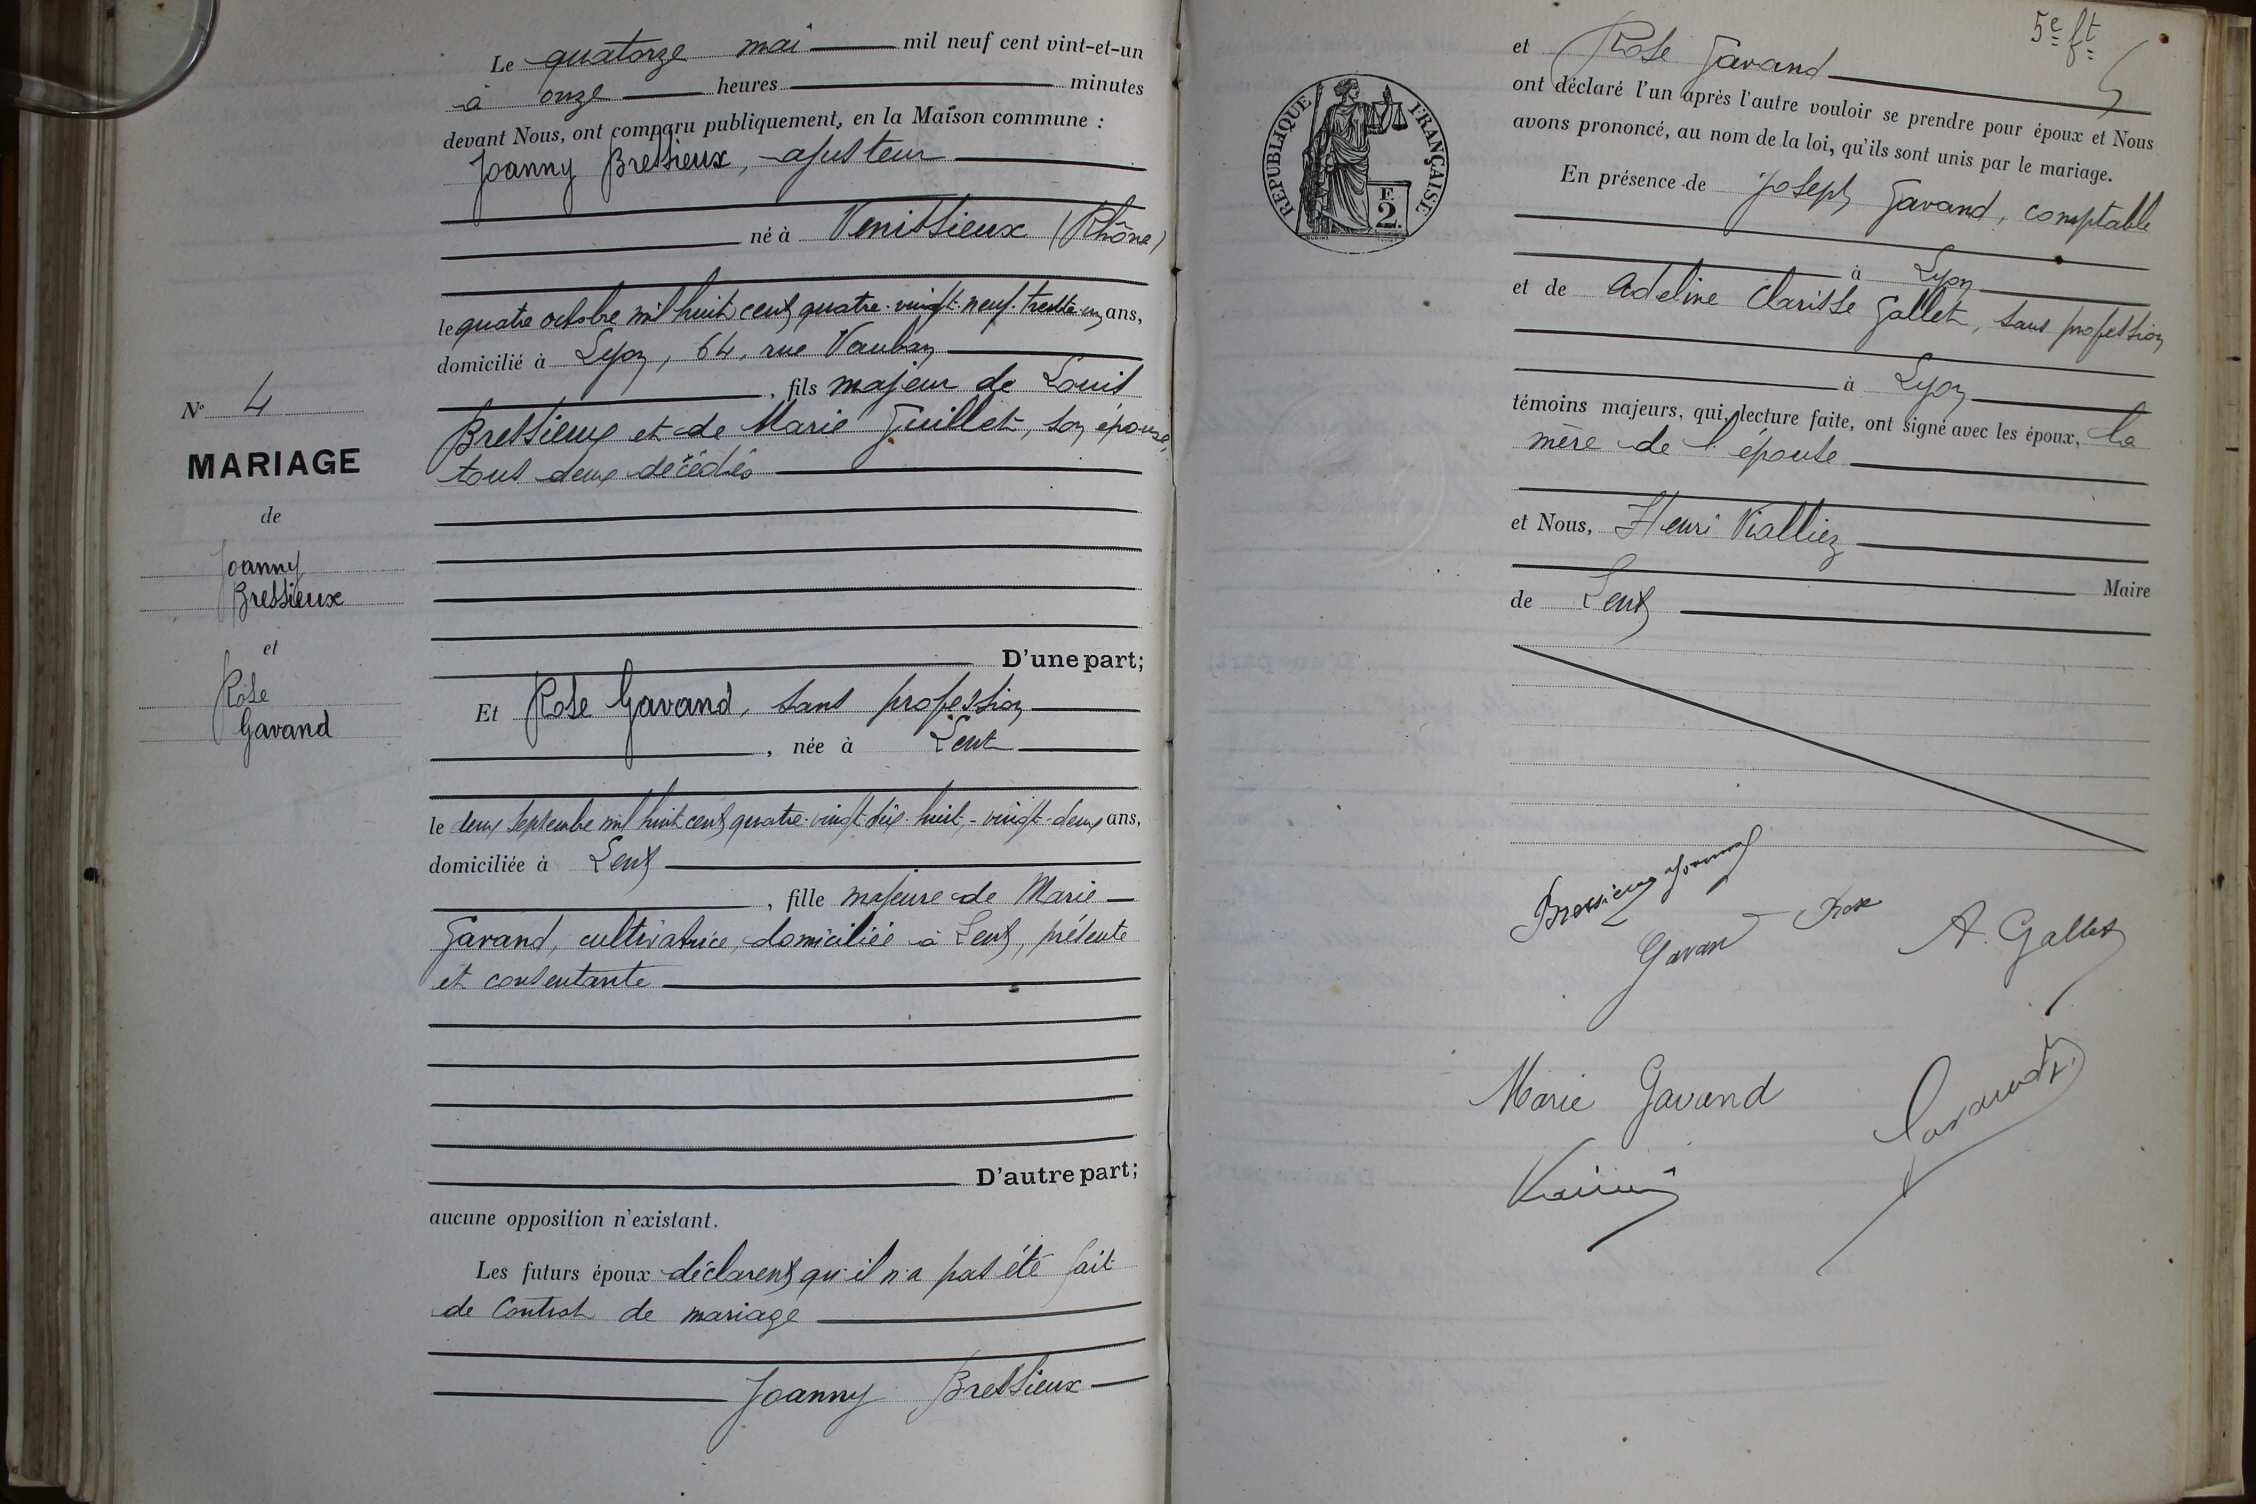 Le quatorze mai mil neuf cent vint-et-un
à onze heures minutes
devant Nous, ont comparu publiquement, en la Maison commune :
Joanny Bressieux, ajusteur
né à Venissieux (Rhône)
le quatre octobre mil huit cent quatre-vingt-neuf, trente-un ans,
domicilié à Lyon, 64, rue Vauban
, fils majeur de Louis
Bressieux et de Marie Guillet, son épouse,
tous deux décédés
D'une part;
Et Rose Gavand, sans profession
, née à Lent
le deux septembre mil huit cent quatre-vingt-dix-huit, - vingt-deux ans,
domiciliée à Lent
, fille majeure de Marie
Gavand, cultivatrice, domiciliée à Lent, présente
et consentante
D'autre part;
aucune opposition n'existant.
Les futurs époux déclarent qu'il n'a pas été fait
de contrat de mariage
Joanny Bressieux
No 4
MARIAGE
de
Joanny
Bressieux
et
Rose
Gavand
5e ft
et Rose Gavand
ont déclaré l'un après l'autre vouloir se prendre pour époux et Nous
avons prononcé, au nom de la loi, qu'ils sont unis par le mariage.
En présence de Joseph Gavand, comptable
à Lyon
et de Adeline Clarisse Gallet, sans profession
à Lyon
témoins majeurs, qui, lecture faite, ont signé avec les époux, la
mère de l'épouse
et Nous, Henri Vialliez
Maire
de Lent
RÉPUBLIQUE FRANÇAISE
F.
2.
Bressieux Joanny
Gavand Rose
A. Gallet
Marie Gavand
Gavand J.